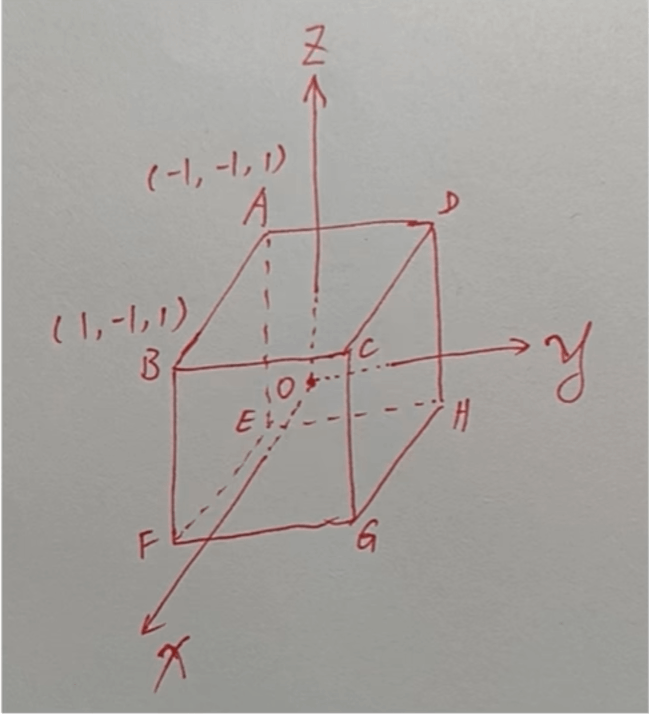 Z
(-1, -1, 1)
A
D
(1, -1, 1)
B
C
O
y
E
H
F
G
X